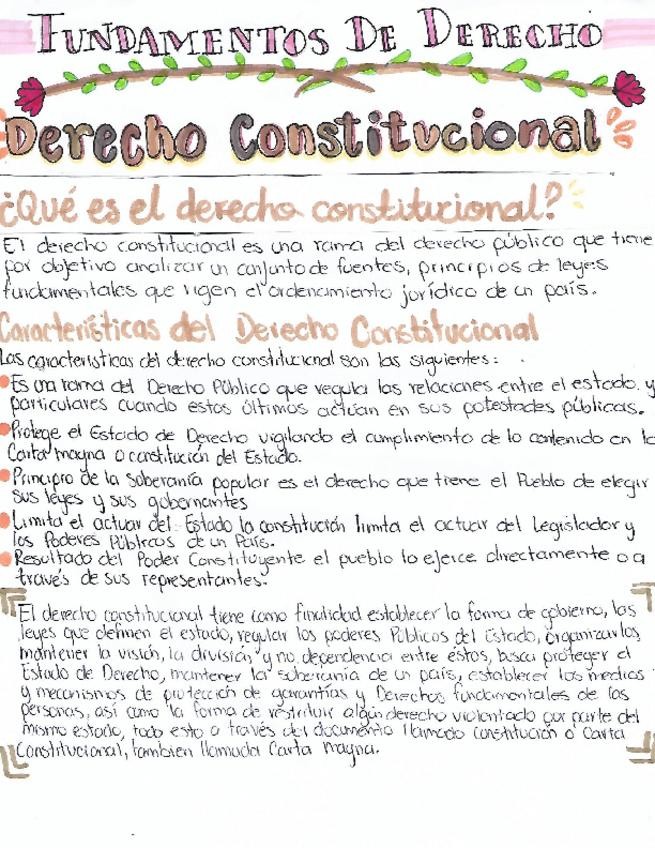 FUNDAMENTOS DE DERECHO
Derecho Constitucional
¿Qué es el derecho constitucional?
El derecho constitucional es una rama del derecho público que tiene
por objetivo analizar un conjunto de fuentes, principios de leyes
fundamentales que rigen el ordenamiento jurídico de un país.
Características del Derecho Constitucional
Las características del derecho constitucional son las siguientes:
Es una rama del Derecho Público que regula las relaciones entre el estado y
particulares cuando estos últimos actúan en sus potestades públicas.
Protege el Estado de Derecho vigilando el cumplimiento de lo contenido en la
Carta magna o constitución del Estado.
Principio de la soberanía popular es el derecho que tiene el Pueblo de elegir
sus leyes y sus gobernantes
Limita el actuar del Estado la constitución limita el actuar del Legislador y
los Poderes Públicos de un País.
Resultado del Poder Constituyente el pueblo lo ejerce directamente o a
través de sus representantes.
El derecho constitucional tiene como finalidad establecer la forma de gobierno, las
leyes que definen el estado, regular los poderes Públicos del Estado, organizarlos,
mantener la visión, la división y no dependencia entre éstos, busca proteger el
Estado de Derecho, mantener la soberanía de un país, establecer los medios
y mecanismos de protección de garantías y Derechos fundamentales de las
personas, así como la forma de restituir algún derecho violentado por parte del
mismo estado, todo esto a través del documento llamado Constitución o Carta
Constitucional, tambien llamada Carta magna.